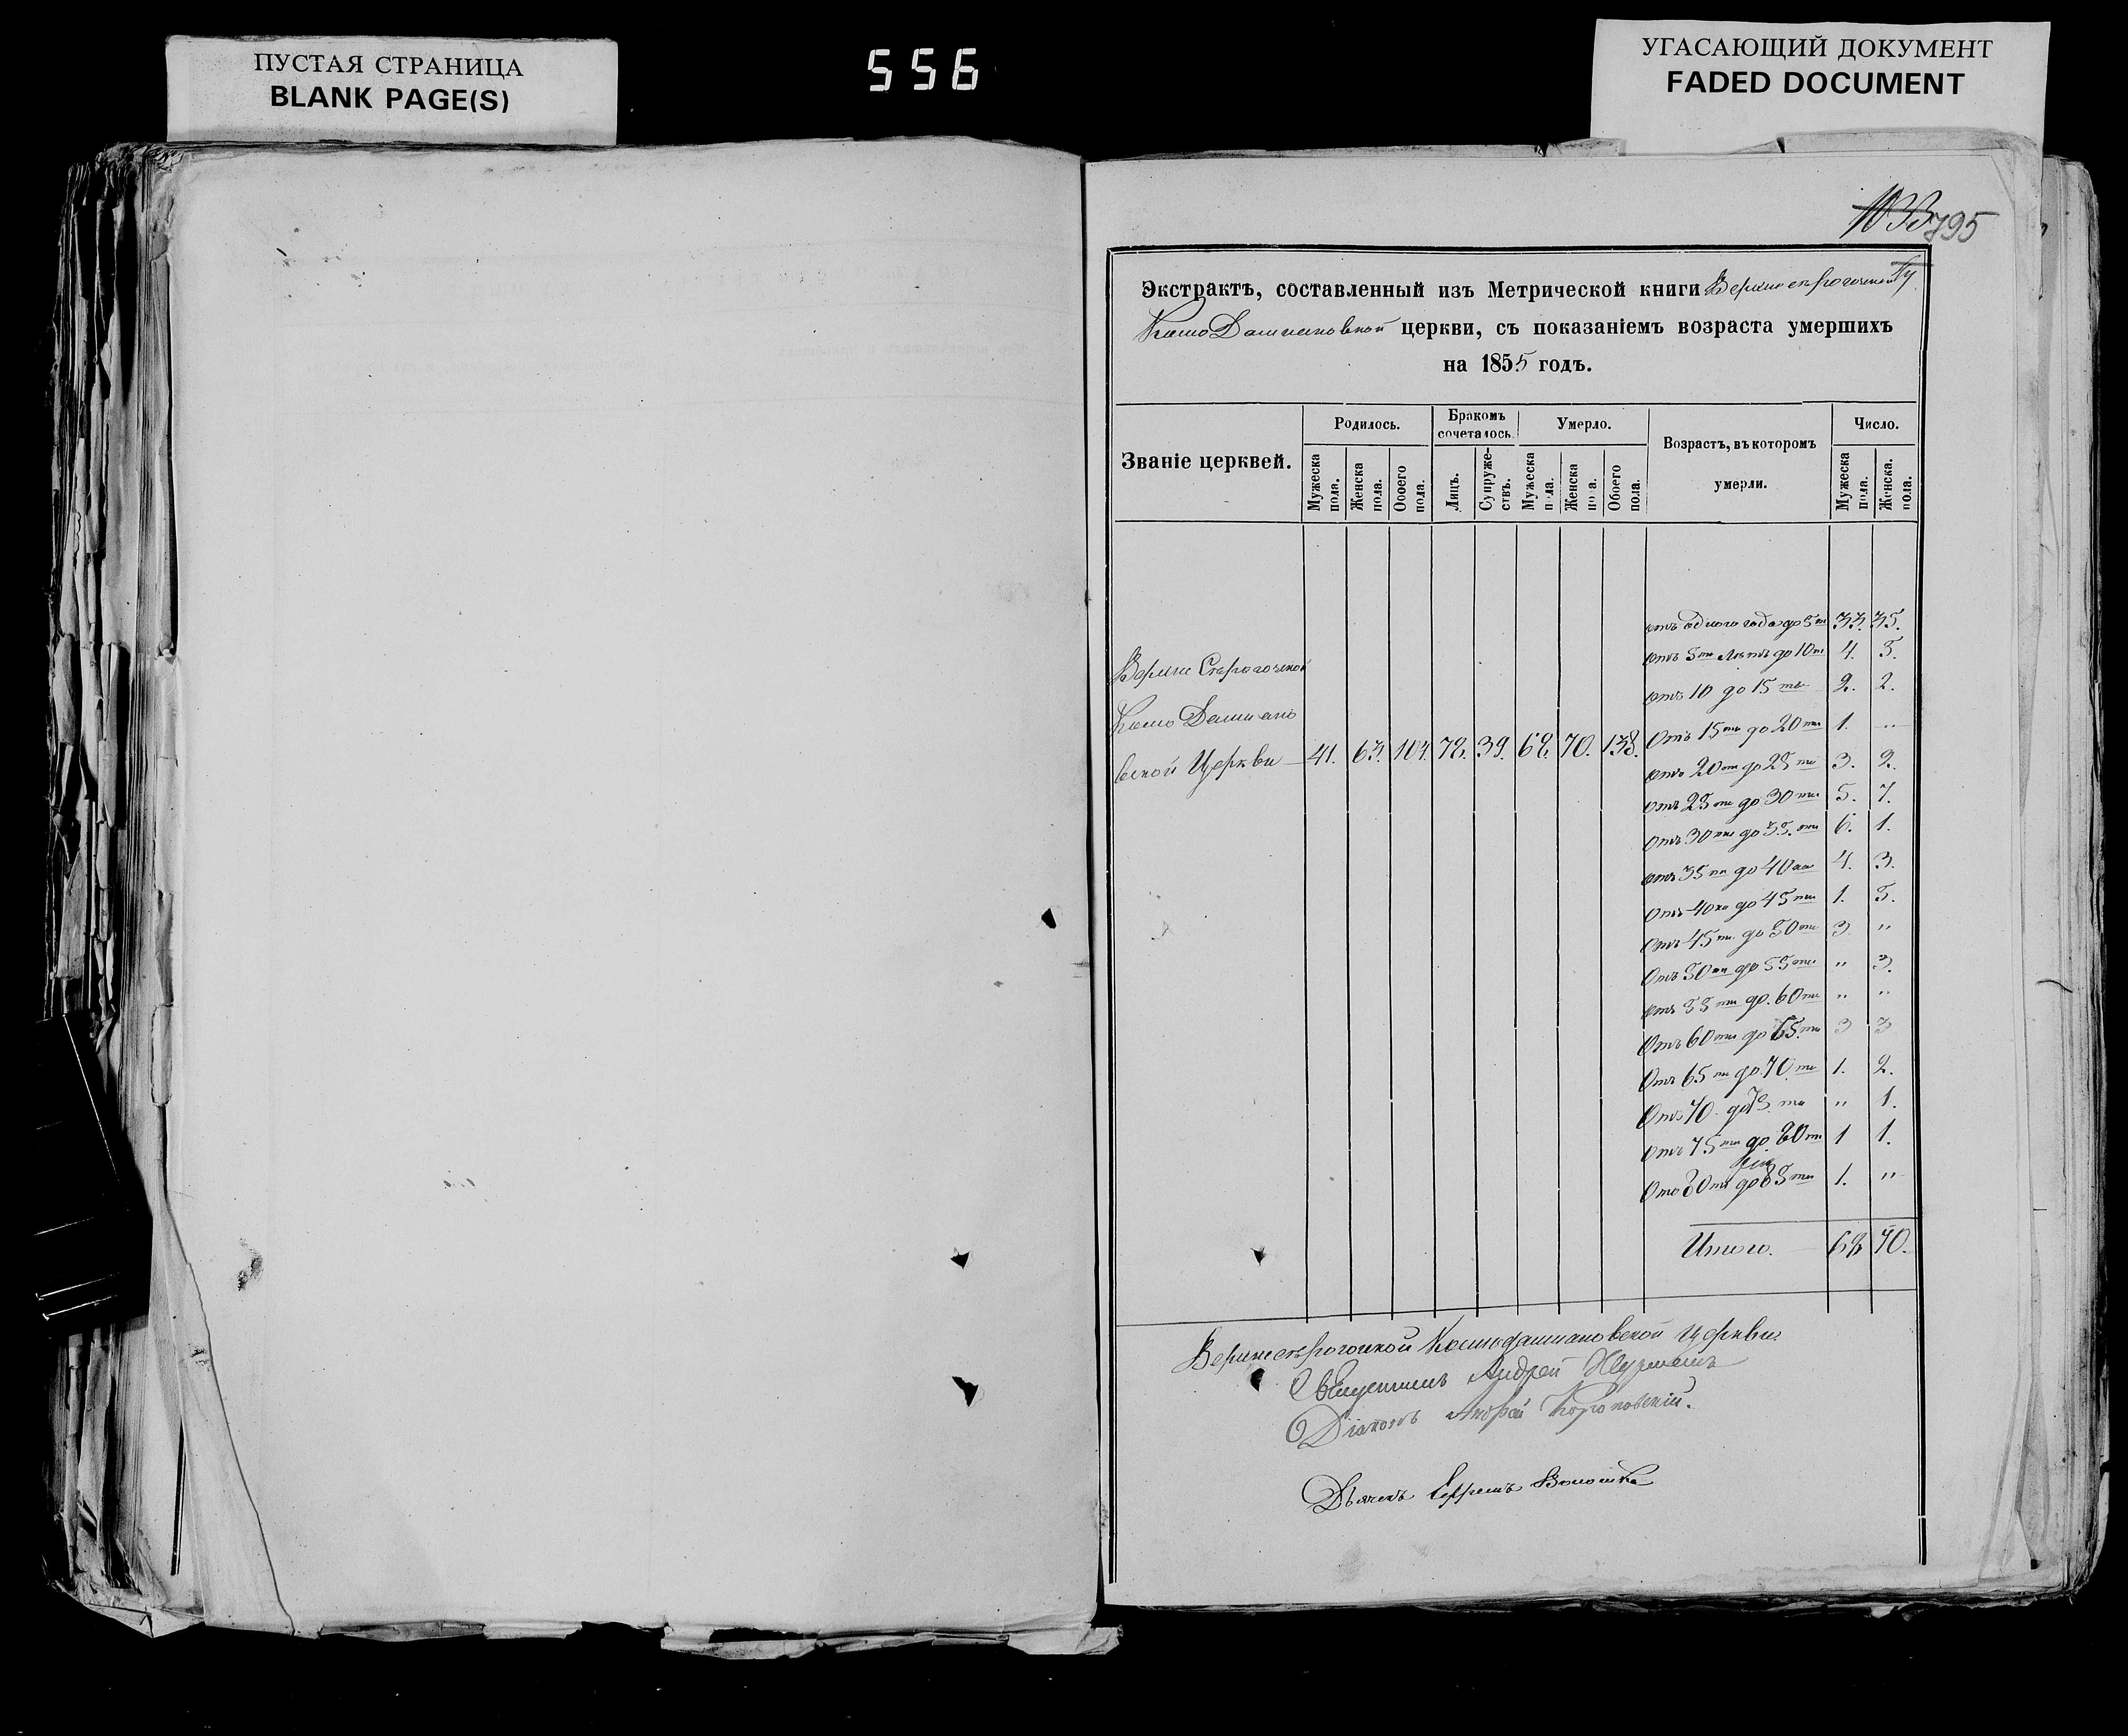 ПУСТАЯ СТРАНИЦА
BLANK PAGE(S)
556
УГАСАЮЩИЙ ДОКУМЕНТ
FADED DOCUMENT
1033 795
Экстрактъ, составленный изъ Метрической книги
Космо Даміановской церкви, съ показаніемъ возраста умершихъ
на 1855 годъ.
Званіе церквей.
Родилось.
Мужеска пола.
Женска пола.
Обоего пола.
Бракомъ сочеталось.
Лицъ.
Супружествъ.
Умерло.
Мужеска пола.
Женска пола.
Обоего пола.
Возрастъ, въ которомъ умерли.
Число.
Мужеска пола.
Женска. пола.
Космо Даміано
вской Церкви 41. 63. 104. 78. 39. 68. 70. 138.
отъ одного года до 5ти 33. 35.
отъ 5ти лѣтъ до 10ти 4. 5.
отъ 10 до 15ти 2. 2.
Отъ 15ти до 20ти 1. "
отъ 20ти до 25ти 3. 2.
отъ 25ти до 30ти 5. 7.
отъ 30ти до 35ти 6. 1.
отъ 35ти до 40ка 4. 3.
Отъ 40ка до 45ти 1. 5.
Отъ 45ти до 50ти 3. "
Отъ 50ти до 55ти " 3.
отъ 55ти до 60ти " "
Отъ 60ти до 65ти 3 3
Отъ 65ти до 70ти 1. 2.
Отъ 70. до 75ти " 1.
отъ 75ти до 80ти 1 1.
Отъ 80ти до 85ти 1. "
Итого. 68 70.
Космодаміановской Церкви
Священникъ Андрей
Діаконъ Андрей
Дьячекъ Ефремъ Волошко